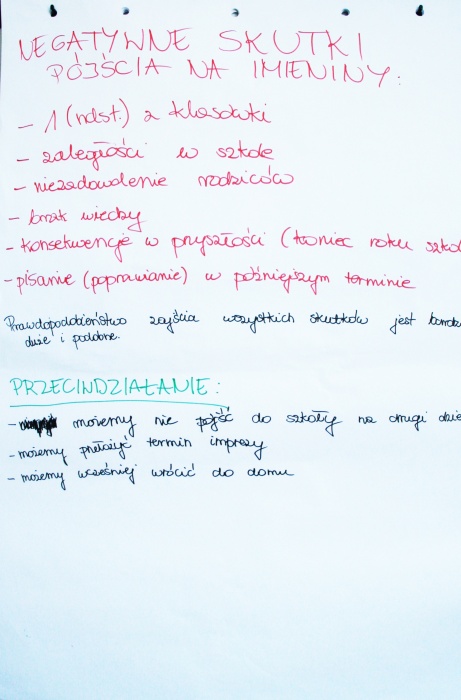 NEGATYWNE SKUTKI
PÓJŚCIA NA IMIENINY:
– 1 (ndst.) z klasówki
– zaległości w szkole
– niezadowolenie rodziców
– brak wiedzy
– konsekwencje w przyszłości (koniec roku szkol
– pisanie (poprawianie) w późniejszym terminie
Prawdopodobieństwo zajścia wszystkich skutków jest bardz
duże i podobne.
PRZECINDZIAŁANIE:
– możemy nie pójść do szkoły na drugi dzie
– możemy przełożyć termin imprezy
– możemy wcześniej wrócić do domu